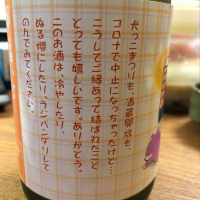 犬っこまつりも、酒蔵開放も、
コロナで中止になっちゃったけど…
こうしてご縁あって結ばれたこと
とっても嬉しいです。ありがとう。
このお酒は、冷やしたり、
ぬる燗にしたり、ランパンダリして
のんでみてください。